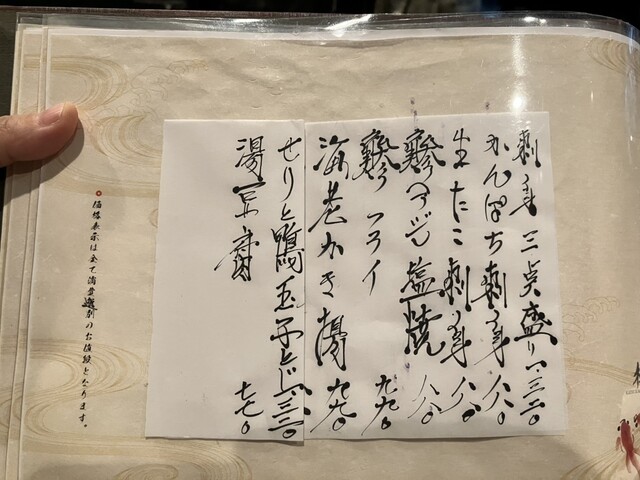 刺身三点盛り 一、三二〇
かんぱち刺身 八八〇
生たこ刺身 八八〇
塩焼 八八〇
フライ 九九〇
海老かき揚 九九〇
せりと鴨玉子とじ 一、三二〇
湯豆腐 七七〇
価格表示は全て消費税別のお値段となります。